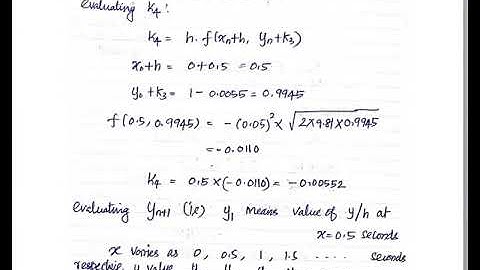 evaluating K₄ :
K₄ = h. f(xn+h, yn+k₃)
x₀+h = 0+0.5 = 0.5
y₀+k₃ = 1-0.0055 = 0.9945
f(0.5, 0.9945) = -(0.05)² × √2×9.81×0.9945
= -0.0110
K₄ = 0.5×(-0.0110) = -0.00552
evaluating yn+1 (i.e) y₁ means value of y/h at
x=0.5 seconds
x varies as 0, 0.5, 1, 1.5 .... seconds
respective y value